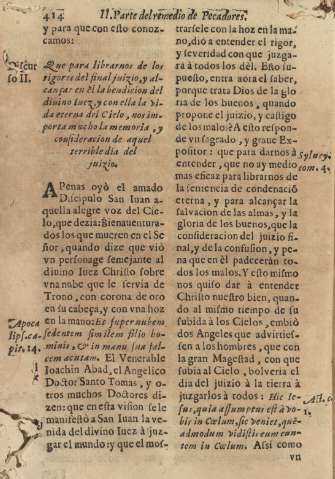 414 II. Parte del remedio de Pecadores.
y para que con esto conoz-
camos:
Discur
so II.
Que para librarnos de los
rigores del final juizio, y al-
cançar en èl la bendicion del
divino Iuez, y con ella la vi-
da eterna del Cielo, nos im-
porta mucho la memoria, y
consideracion de aquel
terrible dia del
juizio.
APenas oyò el amado
Discipulo San Iuan a-
quella alegre voz del Cie-
lo, que dezia: Bienaventura-
dos los que mueren en el Se-
ñor, quando dize que viò
vn personage semejante al
divino Iuez Christo sobre
vna nube que le servia de
Trono, con corona de oro
en su cabeça, y con vna hoz
Apoca
lips. ca-
pit. 14.
en la mano: Et super nubem
sedentem similem filio ho-
minis, & in manu sua fal-
cem acutam. El Venerable
Ioachin Abad, el Angelico
Doctor Santo Tomas, y o-
tros muchos Doctores di-
zen: que en esta vision se le
manifestò a San Iuan la ve-
nida del divino Iuez à juz-
gar el mundo: y que el mos-
trarsele con la hoz en la ma-
no, diò a entender el rigor,
y severidad con que juzga-
rà a todos los dèl. Esto su-
puesto, entra aora el saber,
porque trata Dios de la glo
ria de los buenos, quando
propone el juizio, y castigo
de los malos? A esto respon-
de vn sagrado, y grave Ex-
positor: que para darnos à
entender, que no ay medio
mas eficaz para librarnos de
la sentencia de condenació
eterna, y para alcançar la
salvacion de las almas, y la
gloria de los buenos, que la
consideracion del juizio fi-
nal, y de la confusion, y pe-
na que en èl padeceràn to-
dos los malos. Y esto mismo
nos quiso dar à entender
Christo nuestro bien, quan-
do al mismo tiempo de su
subida à los Cielos, embiò
dos Angeles que advirties-
sen a los hombres, que con
la gran Magestad, con que
subia al Cielo, bolveria el
dia del juizio à la tierra à
juzgarlos à todos: Hic Ie-
sus, qui assumptus est à vo-
bis in Cœlum, sic veniet, què-
admodum vidistis eum eun-
tem in Cœlum. Assi como
vn